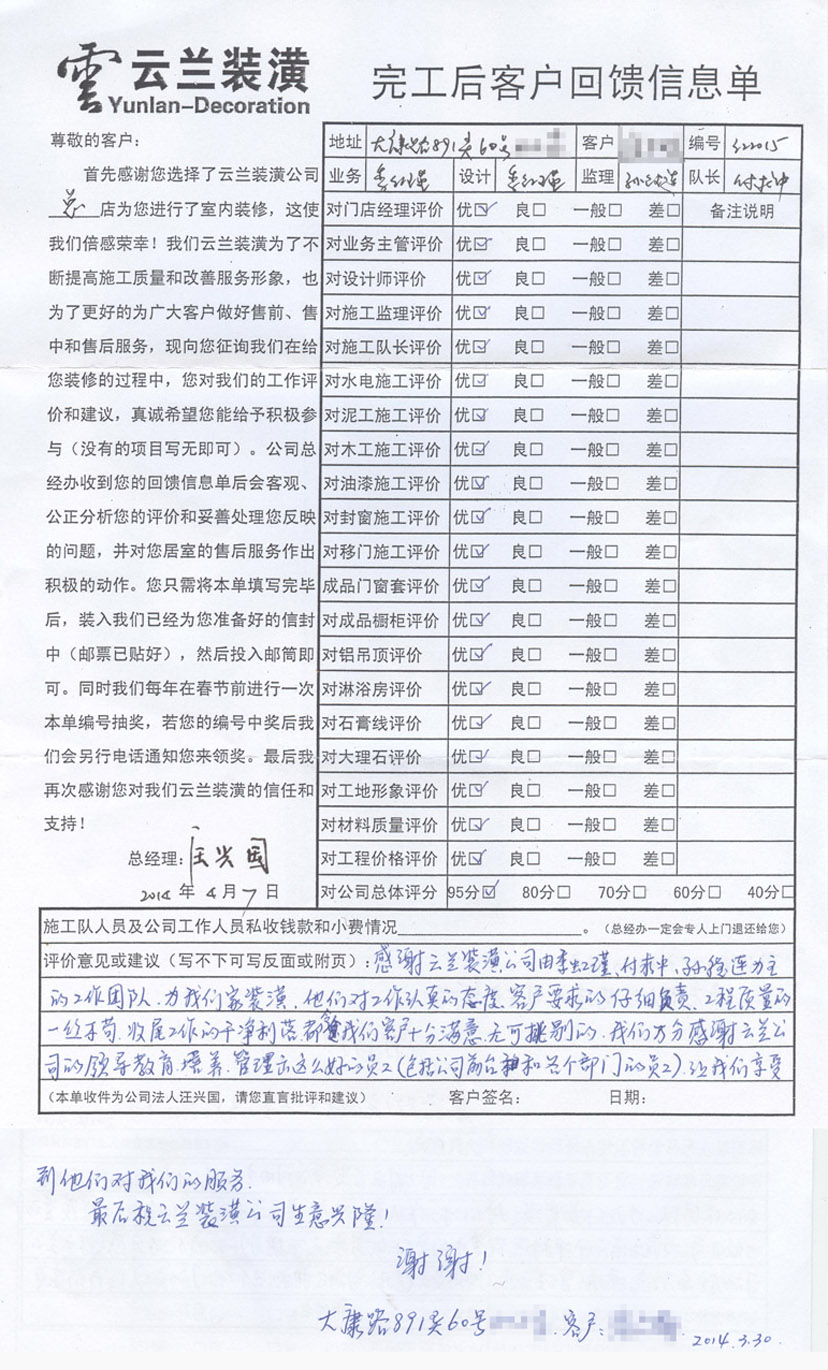 雲 云兰装潢
Yunlan-Decoration
完工后客户回馈信息单
尊敬的客户：
首先感谢您选择了云兰装潢公司
总店为您进行了室内装修，这使
我们倍感荣幸！我们云兰装潢为了不
断提高施工质量和改善服务形象，也
为了更好的为广大客户做好售前、售
中和售后服务，现向您征询我们在给
您装修的过程中，您对我们的工作评
价和建议，真诚希望您能给予积极参
与（没有的项目写无即可）。公司总
经办收到您的回馈信息单后会客观、
公正分析您的评价和妥善处理您反映
的问题，并对您居室的售后服务作出
积极的动作。您只需将本单填写完毕
后，装入我们已经为您准备好的信封
中（邮票已贴好），然后投入邮筒即
可。同时我们每年在春节前进行一次
本单编号抽奖，若您的编号中奖后我
们会另行电话通知您来领奖。最后我
再次感谢您对我们云兰装潢的信任和
支持！
总经理：汪兴国
2014 年 4 月 7 日
地址 大康路891弄60号 客户 编号
业务 季虹瑾 设计 季虹瑾 监理 队长 付求中
对门店经理评价 优☑ 良□ 一般□ 差□ 备注说明
对业务主管评价 优☑ 良□ 一般□ 差□
对设计师评价 优☑ 良□ 一般□ 差□
对施工监理评价 优☑ 良□ 一般□ 差□
对施工队长评价 优☑ 良□ 一般□ 差□
对水电施工评价 优☑ 良□ 一般□ 差□
对泥工施工评价 优☑ 良□ 一般□ 差□
对木工施工评价 优☑ 良□ 一般□ 差□
对油漆施工评价 优☑ 良□ 一般□ 差□
对封窗施工评价 优☑ 良□ 一般□ 差□
对移门施工评价 优☑ 良□ 一般□ 差□
成品门窗套评价 优☑ 良□ 一般□ 差□
对成品橱柜评价 优☑ 良□ 一般□ 差□
对铝吊顶评价 优☑ 良□ 一般□ 差□
对淋浴房评价 优☑ 良□ 一般□ 差□
对石膏线评价 优☑ 良□ 一般□ 差□
对大理石评价 优☑ 良□ 一般□ 差□
对工地形象评价 优☑ 良□ 一般□ 差□
对材料质量评价 优☑ 良□ 一般□ 差□
对工程价格评价 优☑ 良□ 一般□ 差□
对公司总体评分 95分☑ 80分□ 70分□ 60分□ 40分□
施工队人员及公司工作人员私收钱款和小费情况＿＿＿＿。（总经办一定会专人上门退还给您）
评价意见或建议（写不下可写反面或附页）：感谢云兰装潢公司由季虹瑾、付求中、孙 连为主
的工作团队，为我们家装潢，他们对工作认真的态度、客户要求的仔细负责、工程质量的
一丝不苟、收尾工作的干净利落都令我们客户十分满意，无可挑剔的，我们万分感谢云兰公
司的领导教育、培养、管理出这么好的员工（包括公司前台和各个部门的员工），让我们享受
（本单收件为公司法人汪兴国，请您直言批评和建议） 客户签名： 日期：
到他们对我们的服务。
最后祝云兰装潢公司生意兴隆！
谢谢！
大康路891弄60号 客户：
2014.3.30.